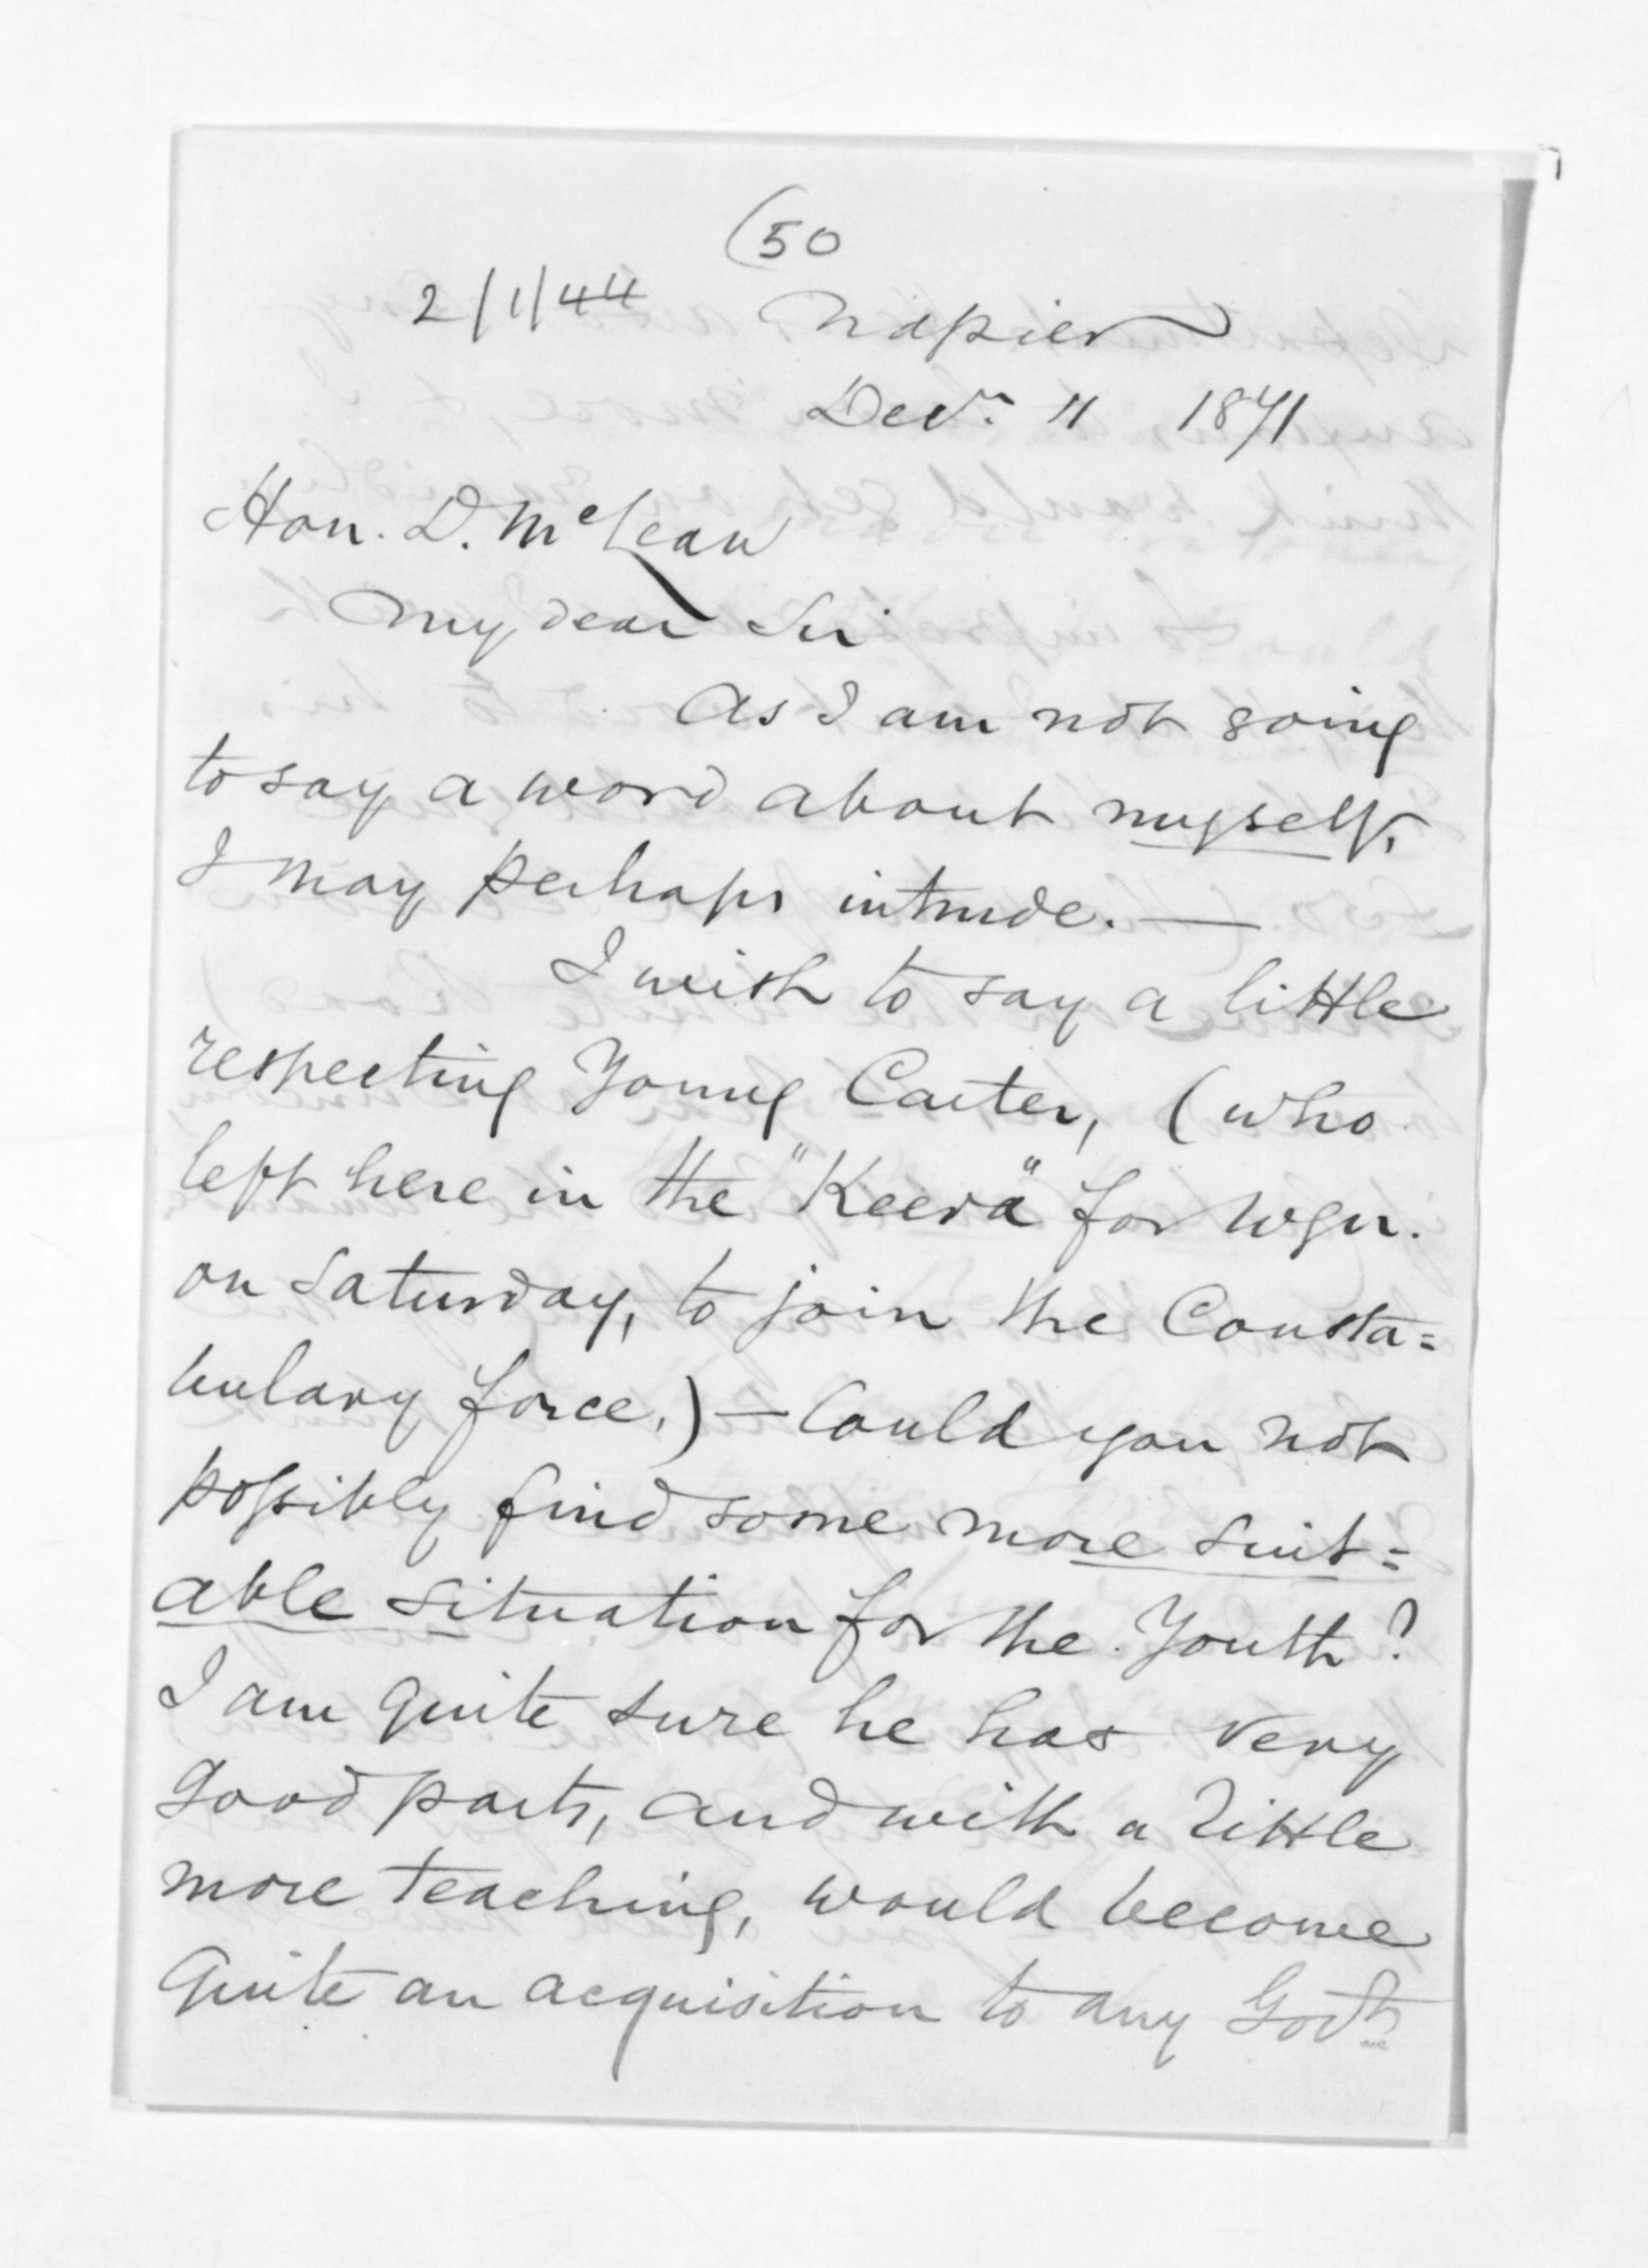 (50
2/1/44 Napier
Decr. 11 1871
Hon. D. McLean
My dear Sir
As I am not going
to say a word about myself,
I may perhaps intrude. —
I wish to say a little
respecting Young Carter, (who
left here in the "Keera" for Wgn.
on Saturday, to join the Consta=
bulary force.) — Could you not
possibly find some more suit=
able situation for the Youth?
I am quite sure he has very
good parts, and with a little
more teaching, would become
quite an acquisition to any Govt.